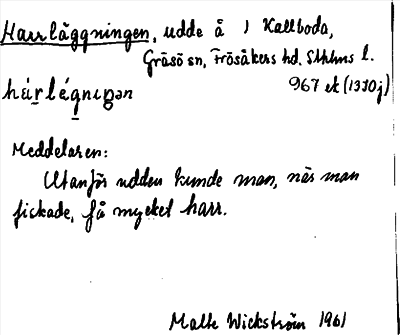 Harrläggningen, udde å 1 Kallboda,
Gräsö sn, Frösåkers hd. Sthlms l.
967 ek (13I0j)
Meddelaren:
Utanför udden kunde man, när man
fickade, få mycket harr.
Malte Wickström 1961